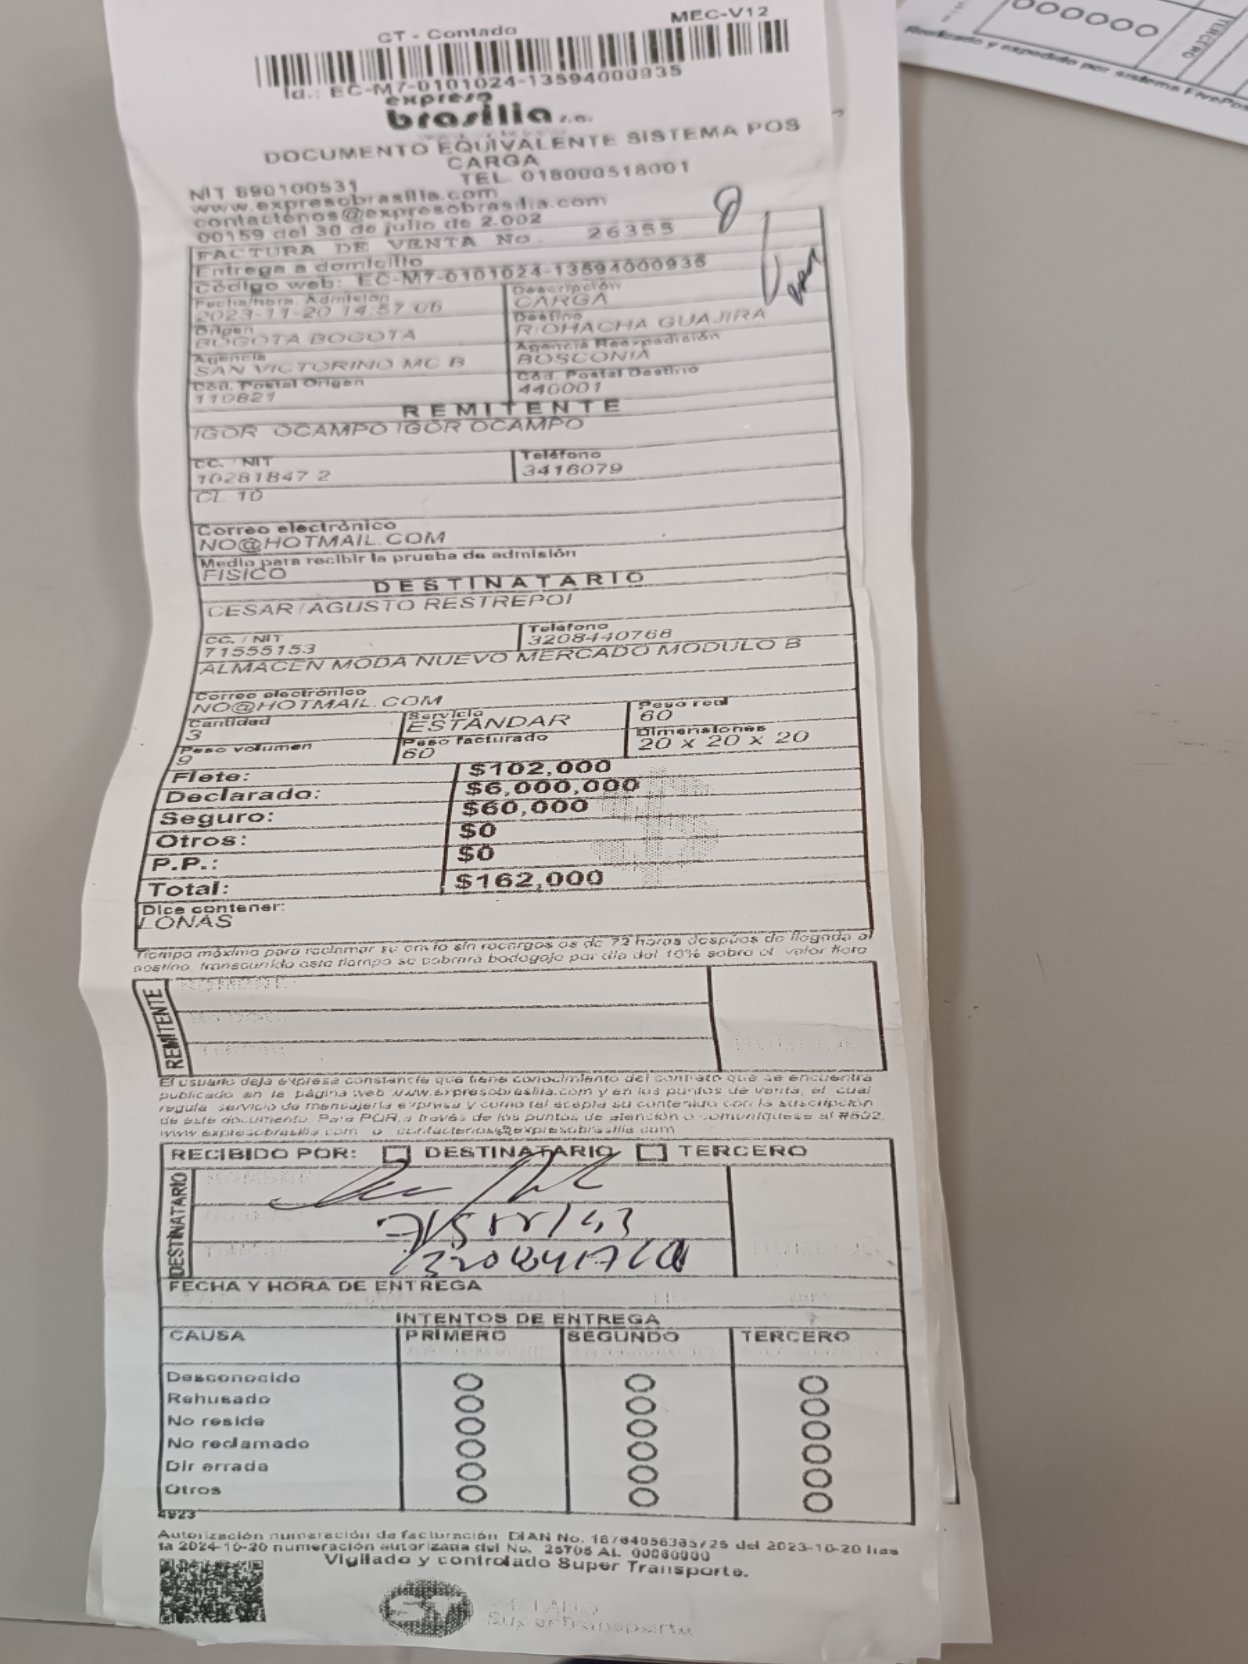 MEC-V12
CT - Contado
Id.: EC-M7-0101024-13594000935
expreso
brasilia s.a.
DOCUMENTO EQUIVALENTE SISTEMA POS
CARGA
NIT 890100531 TEL. 018000518001
www.expresobrasilia.com
contactenos@expresobrasilia.com
00159 del 30 de julio de 2.002
FACTURA DE VENTA No. 26355
Entrega a domicilio
Código web: EC-M7-0101024-13594000935
Fecha/hora. Admisión Descripción
2023-11-20 14:57:06 CARGA
Origen Destino
BOGOTA BOGOTA RIOHACHA GUAJIRA
Agencia Agencia Reexpedición
SAN VICTORINO MC B BOSCONIA
Cód. Postal Origen Cód. Postal Destino
110821 440001
REMITENTE
IGOR OCAMPO IGOR OCAMPO
CC. / NIT Teléfono
10281847 2 3416079
CL 10
Correo electrónico
NO@HOTMAIL.COM
Medio para recibir la prueba de admisión
FISICO
DESTINATARIO
CESAR AGUSTO RESTREPOI
CC. / NIT Teléfono
71555153 3208440768
ALMACEN MODA NUEVO MERCADO MODULO B
Correo electrónico
NO@HOTMAIL.COM
Cantidad Servicio Peso real
3 ESTÁNDAR 60
Peso volumen Peso facturado Dimensiones
9 60 20 x 20 x 20
Flete: $102,000
Declarado: $6,000,000
Seguro: $60,000
Otros: $0
P.P.: $0
Total: $162,000
Dice contener:
LONAS
Tiempo máximo para reclamar su envío sin recargos es de 72 horas después de llegada al
destino, transcurrido este tiempo se cobrará bodegaje por día del 10% sobre el valor flete
REMITENTE
El usuario deja expresa constancia que tiene conocimiento del contrato que se encuentra
publicado en la página web www.expresobrasilia.com y en los puntos de venta, el cual
regula servicio de mensajería expresa y como tal acepta su contenido con la suscripción
de este documento. Para PQR, a través de los puntos de atención o comuníquese al #502,
www.expresobrasilia.com o contactenos@expresobrasilia.com
RECIBIDO POR: DESTINATARIO TERCERO
DESTINATARIO
FECHA Y HORA DE ENTREGA
INTENTOS DE ENTREGA
CAUSA PRIMERO SEGUNDO TERCERO
Desconocido
Rehusado
No reside
No reclamado
Dir errada
Otros
4923
Autorización numeración de facturación DIAN No. del 2023-10-20 has
ta 2024-10-20 numeración autorizada del No. 25705 AL
Vigilado y controlado Super Transporte.
SuperTransporte
TERCERO
Realizado y expedido por sistema